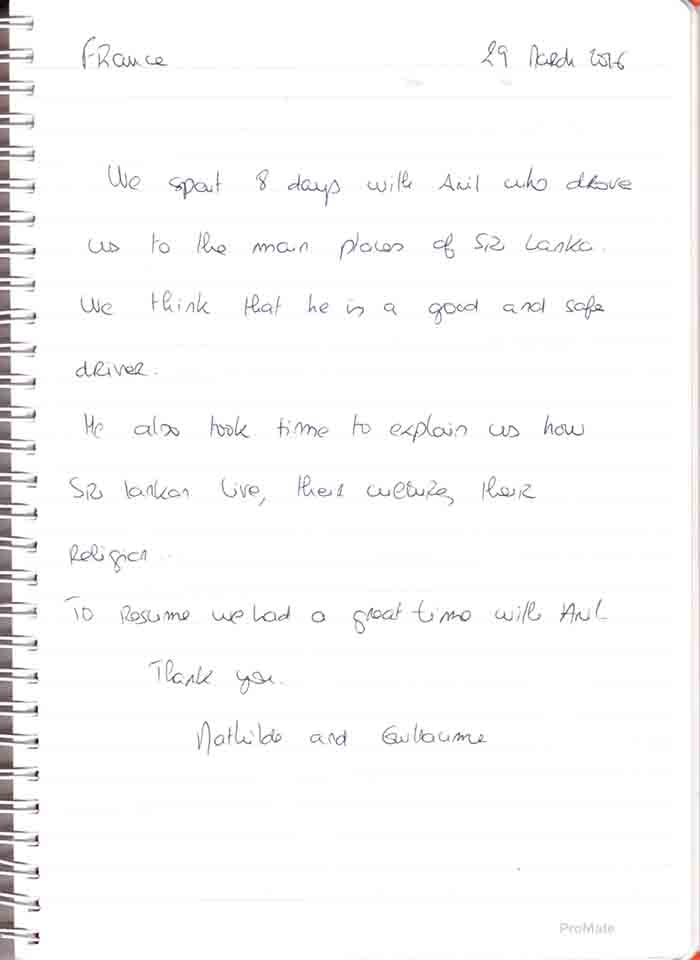 France 29 March 2016
We spent 8 days with Anil who drove
us to the main places of SRi Lanka.
We think that he is a good and safe
driver.
He also took time to explain us how
SRi lankan live, their culture, their
Religion...
To Resume we had a great time with Anil.
Thank you.
Mathilde and Guillaume
ProMate